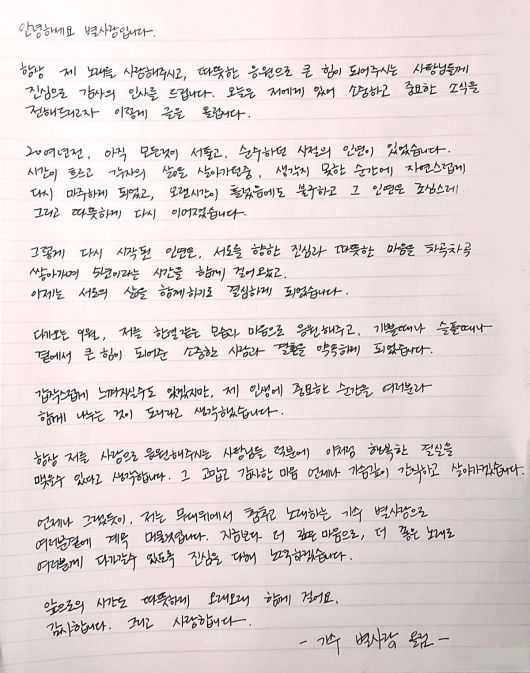 안녕하세요 별사랑입니다.
항상 제 노래를 사랑해주시고, 따뜻한 응원으로 큰 힘이 되어주시는 사랑님들께
진심으로 감사의 인사를 드립니다. 오늘은 저에게 있어 소중하고 중요한 소식을
전해드리고자 이렇게 글을 올립니다.
20여년전, 아직 모든것이 서툴고, 순수하던 시절의 인연이 있었습니다.
시간이 흐르고 각자의 삶을 살아가던중, 생각지 못한 순간에 자연스럽게
다시 마주하게 되었고, 오랜시간이 흘렀음에도 불구하고 그 인연은 조심스레..
그리고 따뜻하게 다시 이어졌습니다.
그렇게 다시 시작된 인연은, 서로를 향한 진심과 따뜻한 마음을 차곡차곡
쌓아가며 5년이라는 시간을 함께 걸어왔고,
이제는 서로의 삶을 함께하기로 결심하게 되었습니다.
다가오는 9월, 저를 한결같은 모습과 마음으로 응원해주고, 기쁠때나 슬플때나
곁에서 큰 힘이 되어준 소중한 사람과 결혼을 약속하게 되었습니다.
갑작스럽게 느껴지실수도 있겠지만, 제 인생에 중요한 순간을 여러분과
함께 나누는 것이 도리라고 생각했습니다.
항상 저를 사랑으로 응원해주시는 사랑님들 덕분에 이처럼 행복한 결실을
맺을수 있다고 생각합니다. 그 고맙고 감사한 마음 언제나 가슴깊이 간직하고 살아가겠습니다.
언제나 그랬듯이, 저는 무대위에서 춤추고 노래하는 가수 별사랑으로
여러분곁에 계속 머물겠습니다. 지금보다 더 깊은 마음으로, 더 좋은 노래로
여러분께 다가갈수 있도록 진심을 다해 노력하겠습니다.
앞으로의 시간도 따뜻하게 오래오래 함께 걸어요.
감사합니다. 그리고 사랑합니다.
- 가수 별사랑 올림 -